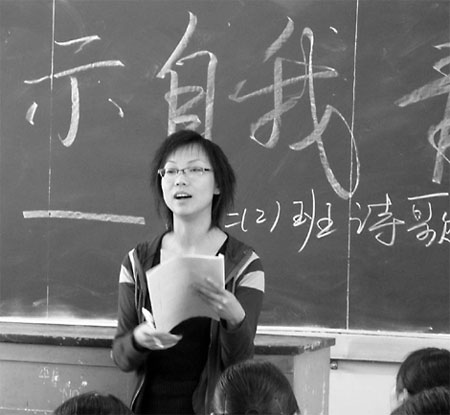 示自我
一二(2)班诗歌